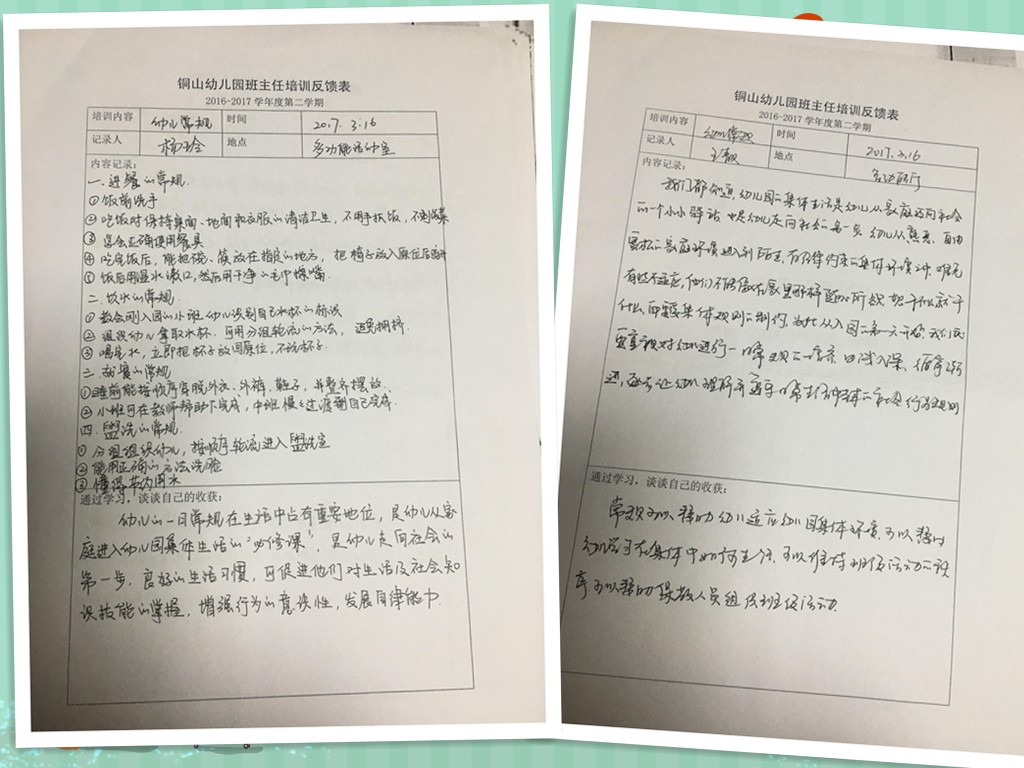 铜山幼儿园班主任培训反馈表
2016-2017 学年度第二学期
培训内容 幼儿常规 时间 2017.3.16
记录人 地点 多功能活动室
内容记录:
一.进餐的常规.
①饭前洗手
②吃饭时保持桌面、地面和衣服的清洁卫生,不用手抓饭,不剩饭菜
③学会正确使用餐具
④吃完饭后,能把碗、筷放在指定的地方,把椅子放入原位后离开
⑤饭后用温水漱口,然后用干净的毛巾擦嘴.
二.饮水的常规.
①教会刚入园的小班幼儿识别自己水杯的标识
②组织幼儿拿取水杯,可用分组轮流的方法,避免拥挤.
③喝完水,立即把杯子放回原位,不玩杯子.
三.就寝的常规
①睡前能按顺序穿脱外衣、外裤、鞋子,并整齐摆放.
②小班可在教师帮助下完成,中班慢慢过渡到自己完成.
四.盥洗的常规.
①分组组织幼儿,按顺序轮流进入盥洗室
②能用正确的方法洗脸
③懂得节约用水
通过学习,谈谈自己的收获:
幼儿的一日常规在生活中占有重要地位,是幼儿从家
庭进入幼儿园集体生活的“必修课”,是幼儿走向社会的
第一步,良好的生活习惯,可促进他们对生活及社会知
识技能的掌握,增强行为的意识性,发展自律能力.
铜山幼儿园班主任培训反馈表
2016-2017 学年度第二学期
培训内容 幼儿常规 时间 2017.3.16
记录人 地点 多功能厅
内容记录:
我们都知道,幼儿园的集体生活是幼儿从家庭迈向社会
的一个小小驿站,也是幼儿走向社会的第一步.幼儿从熟悉、自由
的家庭环境进入到陌生、有纪律约束的集体环境之中,难免
有些不适应,他们不能像在家里那样随心所欲,想干什么就干
什么,而要受集体规则的制约,为此从入园的第一天开始,我们就
要有意识对幼儿进行一日常规的培养,由浅入深、循序渐
进,逐步让幼儿理解并遵守日常生活中的社会行为规则
通过学习,谈谈自己的收获:
常规可以帮助幼儿适应幼儿园集体环境,可以帮助
幼儿学习在集体中如何生活.可以维持班级活动的秩
序,可以帮助保教人员组织班级活动.